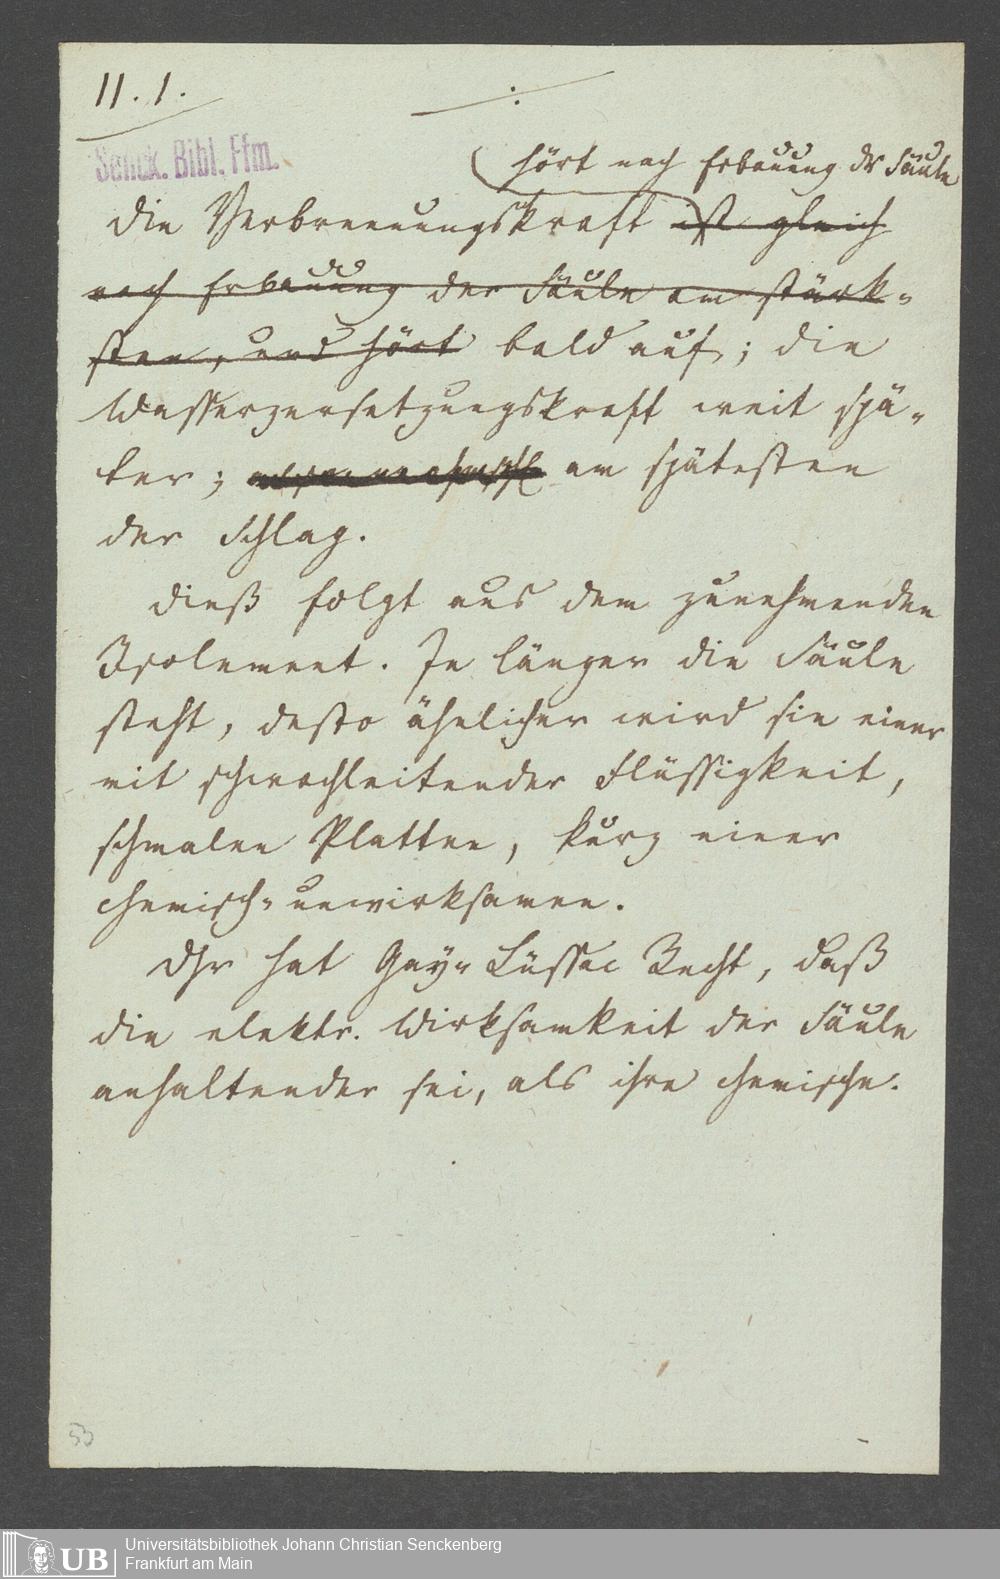 II. 1.
:
Senck. Bibl. Ffm.
hört nach Erbauung dr Säule
die Verbrennungskraft ist gleich
nach Erbauung der Säule am stärk-
sten, und hört bald auf; die
Wasserzersetzungskraft weit spä-
ter; am spätesten
der Schlag.
dieß folgt aus dem zunehmenden
Isolement. Je länger die Säule
steht, desto ähnlicher wird sie einer
mit schwachleitender Flüssigkeit,
schmalen Platten, kurz einer
chemisch-unwirksamen.
Dhr hat Gay-Lüssac Recht, daß
die elektr. Wirksamkeit der Säule
anhaltender sei, als ihre chemische.
53
UB
Universitätsbibliothek Johann Christian Senckenberg
Frankfurt am Main